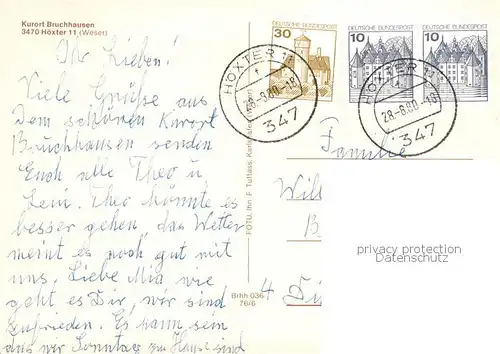 Kurort Bruchhausen
3470 Höxter 11 (Weser)
Ihr Lieben!
Viele Grüße aus
dem schönen Kurort
Bruchhausen senden
Euch alle Theo u
Leni. Theo könnte es
besser gehen, das Wetter
meint es noch gut mit
uns. Liebe Mia wie
geht es Dir, wir sind
zufrieden. Es kann sein
das wir Sonntag zu Hause sind
FOTO: Ihn F. Tuttlass, Karlshafen
Brhh 036
76/6
DEUTSCHE BUNDESPOST
30
DEUTSCHE BUNDESPOST
10
DEUTSCHE BUNDESPOST
10
HÖXTER 11
28.-8.80.-18
347
HÖXTER 11
28.-8.80-18
347
Familie
Will
B
4 Di
privacy protection
Datenschutz